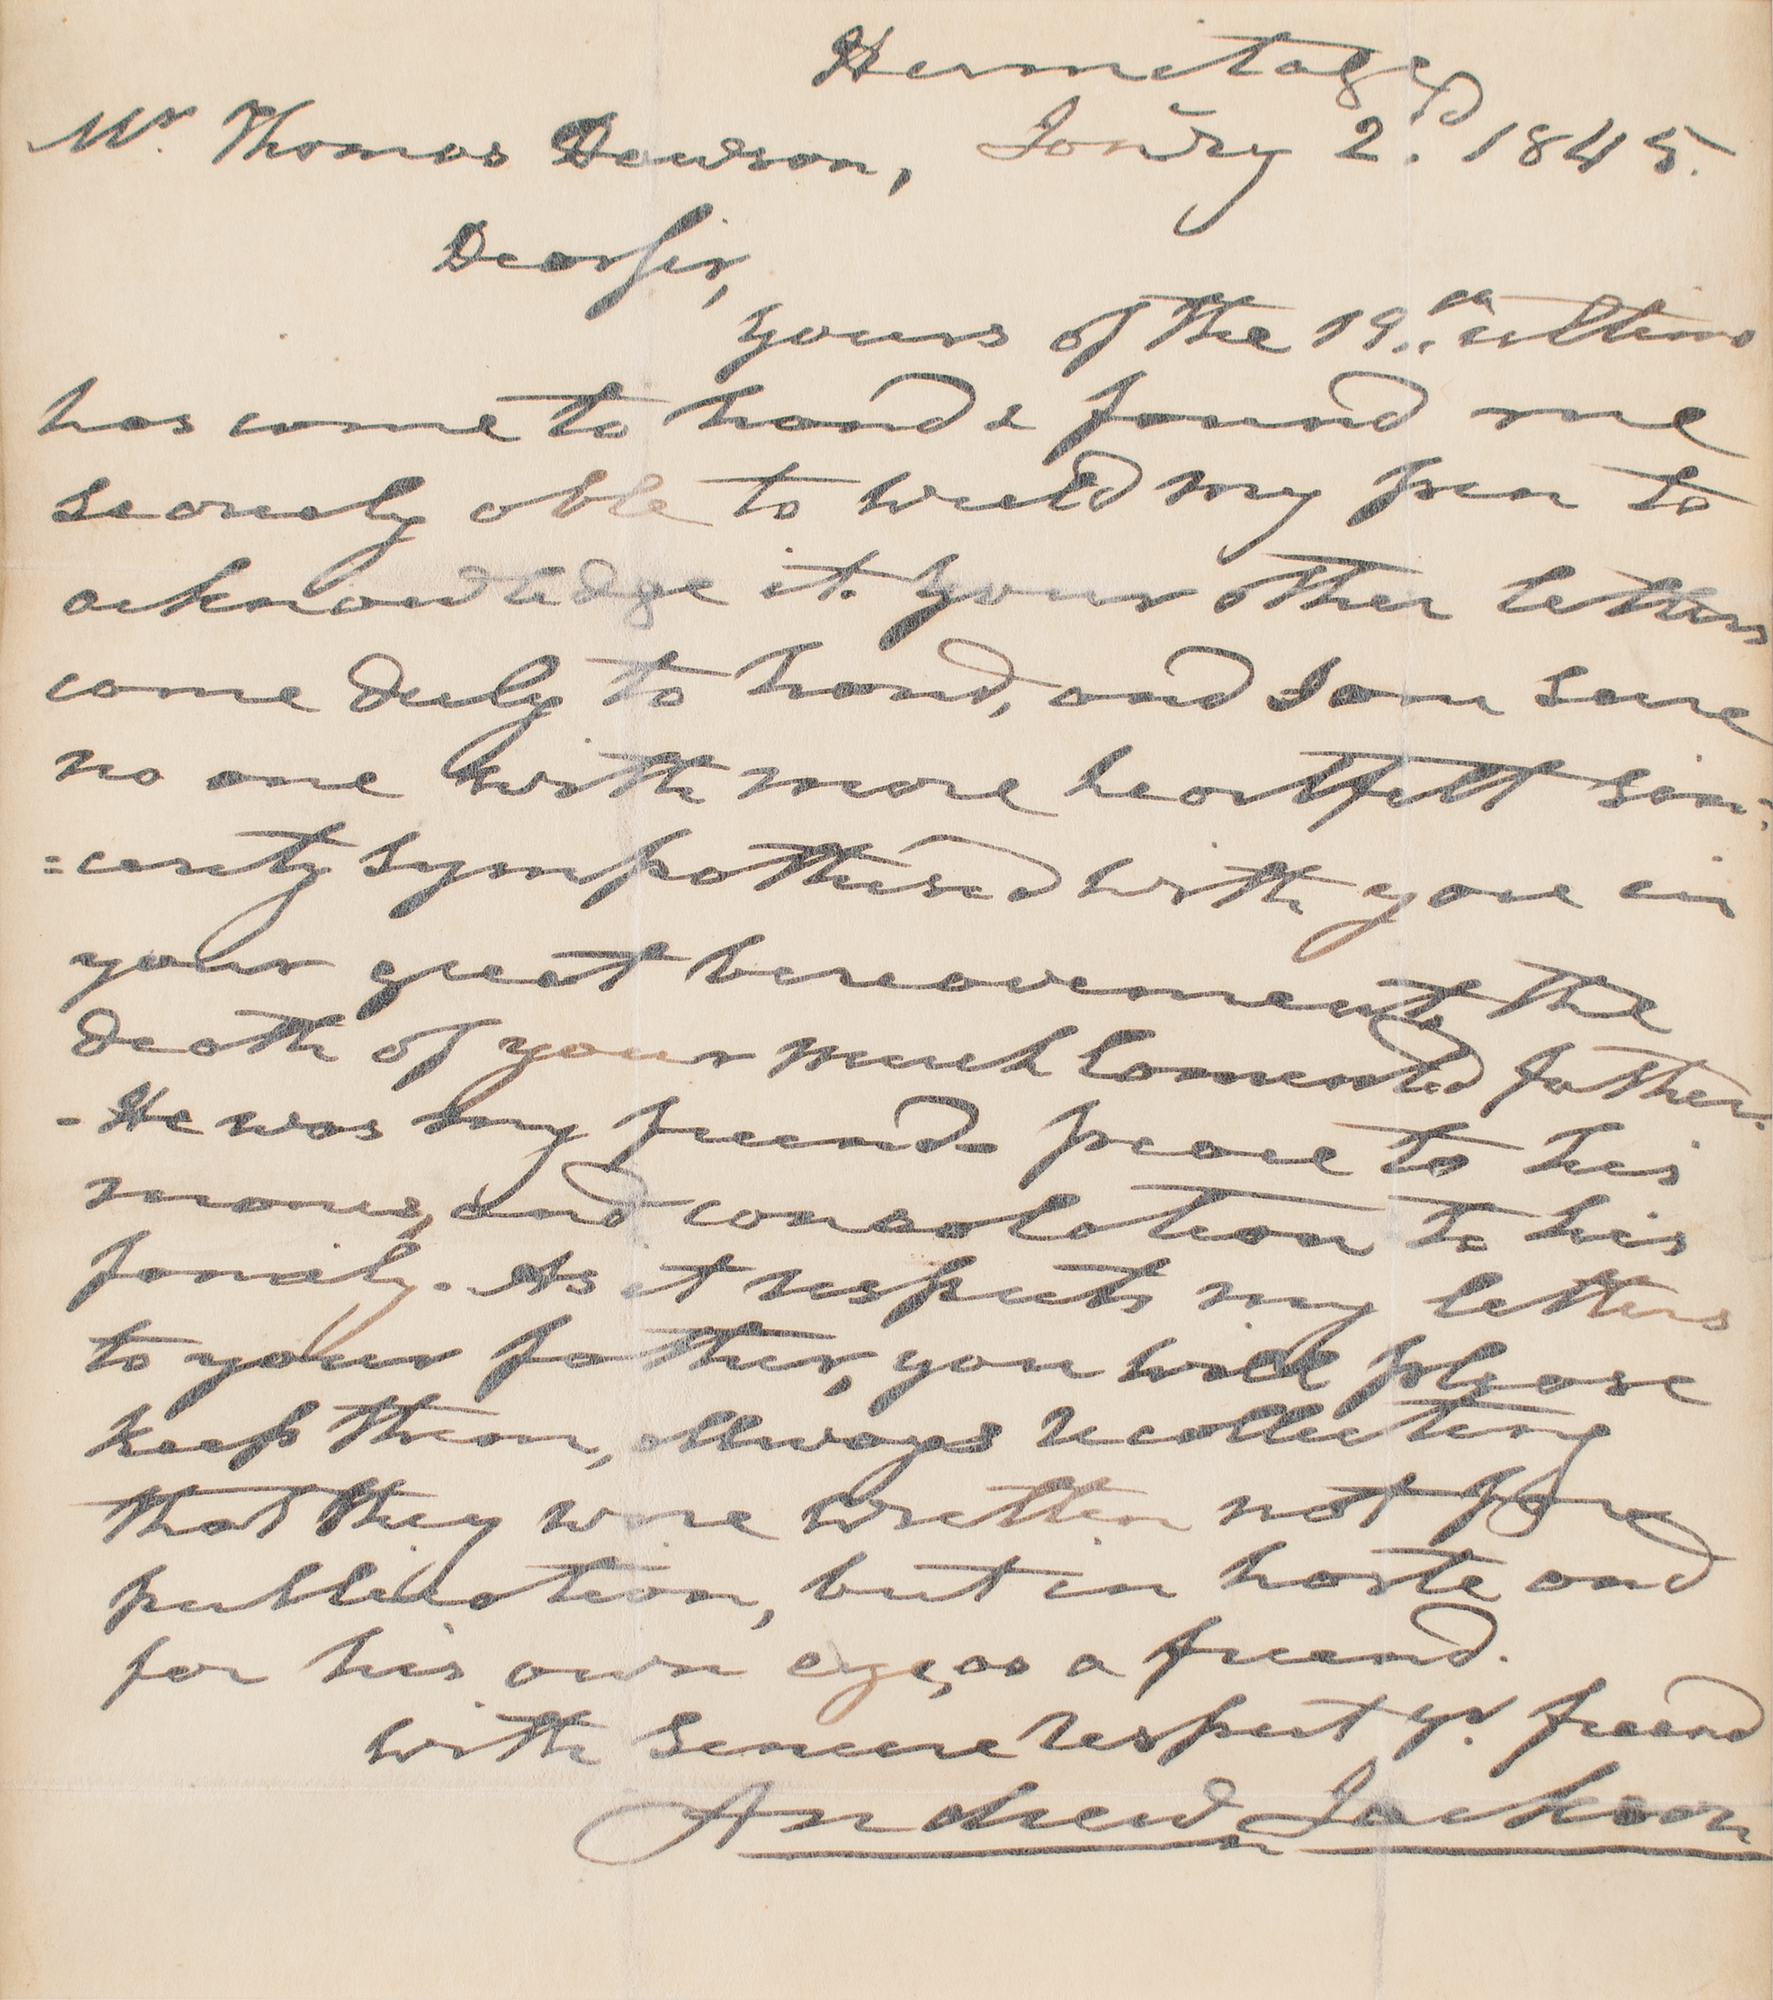 Hermitage
Mr. Thomas Dawson, Janry 2d. 1845.
Dear sir,
yours of the 19th ultimo
has come to hand & found me
scarcely able to wield my pen to
acknowledge it. your other letters
came duly to hand, and I am sure
no one with more heartfelt sin=
=cerity sympathised with you in
your great bereavement, the
death of your much lamented father.
- He was my friend - peace to his
manes, and consolation to his
family. - As it respects my letters
to your father, you will please
keep them, allways recollecting
that they were written not for
publication, but in haste and
for his own eye, as a friend.
with sincere respect yr. friend
Andrew Jackson